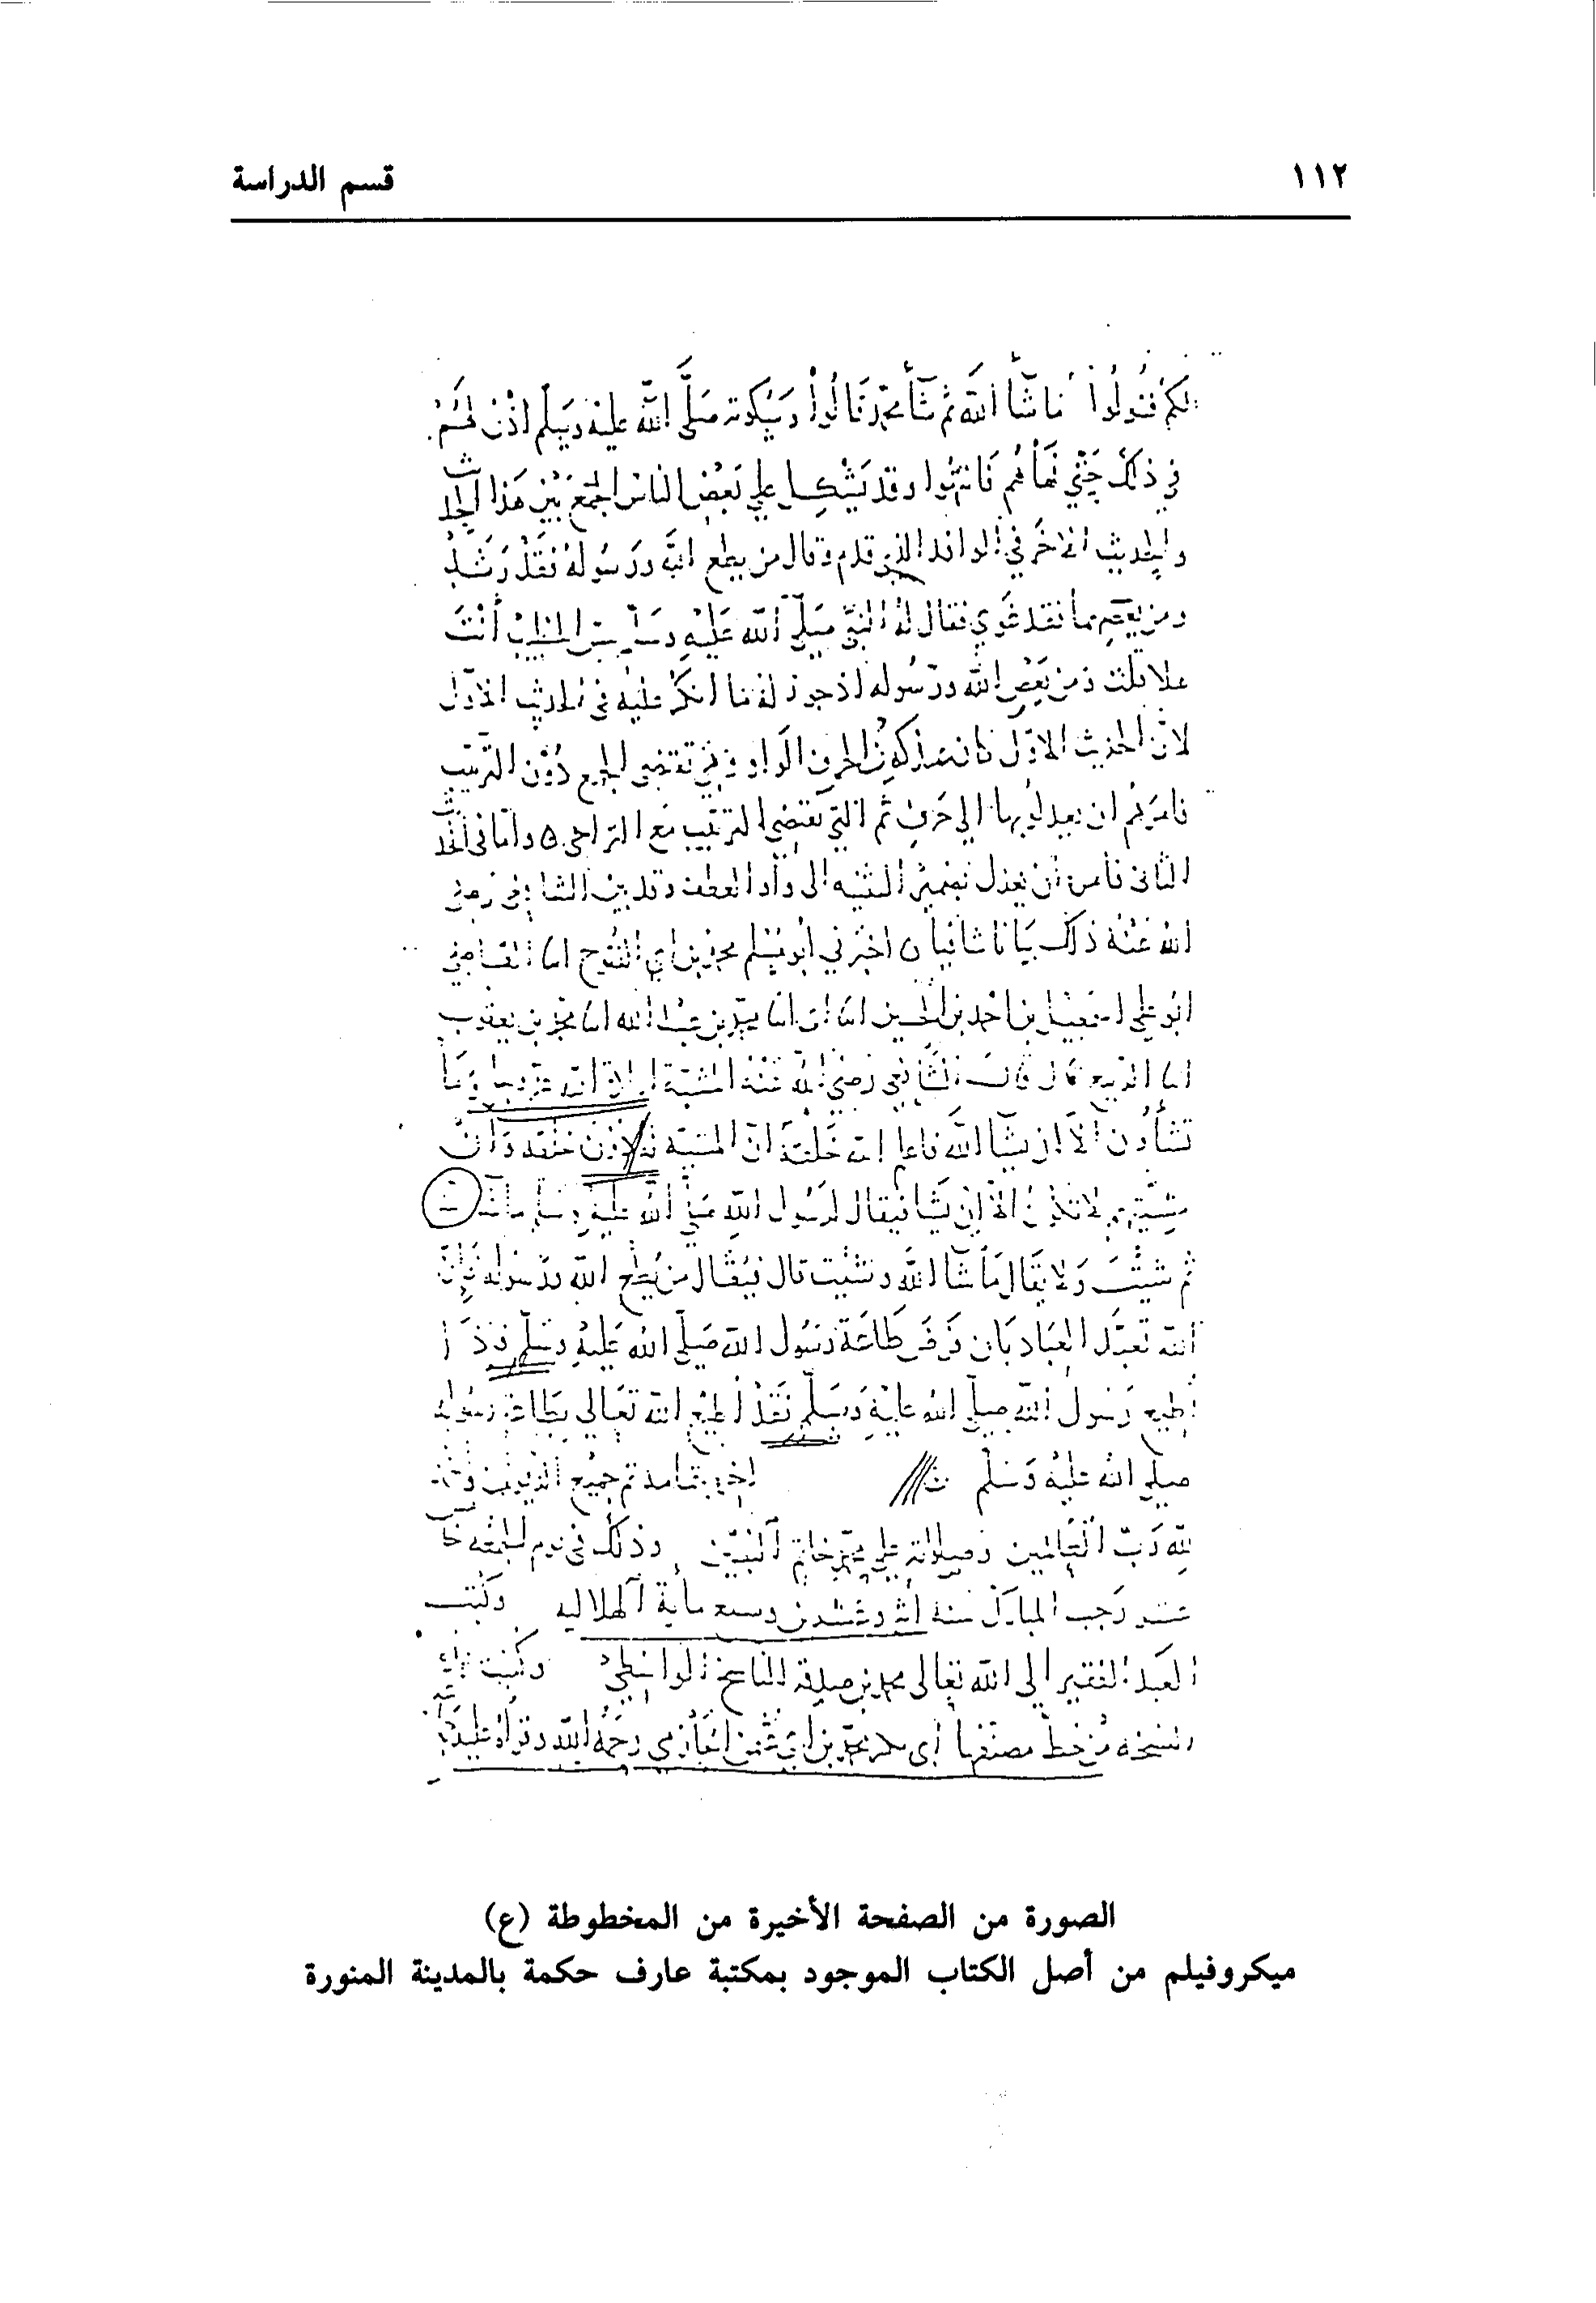 ١١٢
قسم الدراسة
لكم فقولوا ما شآ الله ثم شآ محمد قالوا وسكوته صلى الله عليه وسلم اذن لهم
في ذلك حتي نهاهم فانتهوا وقد يشكل علي بعض الناس الجمع بين هذا الحديث
والحديث الاخر في الوافد الذي قدم وقال من يطع الله ورسوله فقد رشد
ومن يعصهما فقد غوي فقال له النبي صلي الله عليه وسلم بئس الخطيب أنت
هلا قلت ومن يعص الله ورسوله اذ جوز له ما انكر عليه في الحديث الاول
لان الحديث الاول كان بحرف الواو وهي تقتضي الجمع دون الترتيب
فامرهم ان يعدلوا بها الي حرف ثم التي تقتضي الترتيب مع التراخي واما في الحديث
الثاني فأمره أن يعدل بضمير التثنيه الى واو العطف وقد بين الشافعي رضي
الله عنه ذلك بيانا شافيا اخبرني أبو مسلم محمد بن ابي الفتوح انا القاضي
ابو علي اسمعيل بن احمد بن الحسين انا محمد بن عبد الله انا محمد بن يعقوب
انا الربيع قال قال الشافعي رضي الله عنه المشيئة ارادة الله عز وجل وما
تشاؤن الا ان يشآ الله فاعلم الله خلقه ان المشيئة له دون خلقه وان
مشيئتهم لا تكون الا ان يشا فيقال لرسول الله صلي الله عليه وسلم ما شآ
ثم شيت ولا يقال ما شآ الله وشيت قال فيقال من يطع الله ورسوله فان
الله تعبد العباد بان فرض طاعة رسول الله صلي الله عليه وسلم فاذا
اطيع رسول الله صلي الله عليه وسلم فقد أطيع الله تعالي بطاعة رسوله
صلي الله عليه وسلم
لله رب العالمين وصلواته علي محمد خاتم النبيين وذلك في يوم الجمعه
عشر رجب المبارك سنه وعشرين وسبع مأية الهلاليه وكتب
العبد الفقير الى الله تعالى محمد بن صدقه الناسخ الواسطي وكتبت
النسخه من خط مصنفها أبي بكر محمد بن ابي عثمن الحازمي رحمه الله
الصورة من الصفحة الأخيرة من المخطوطة (ع)
ميكروفيلم من أصل الكتاب الموجود بمكتبة عارف حكمة بالمدينة المنورة